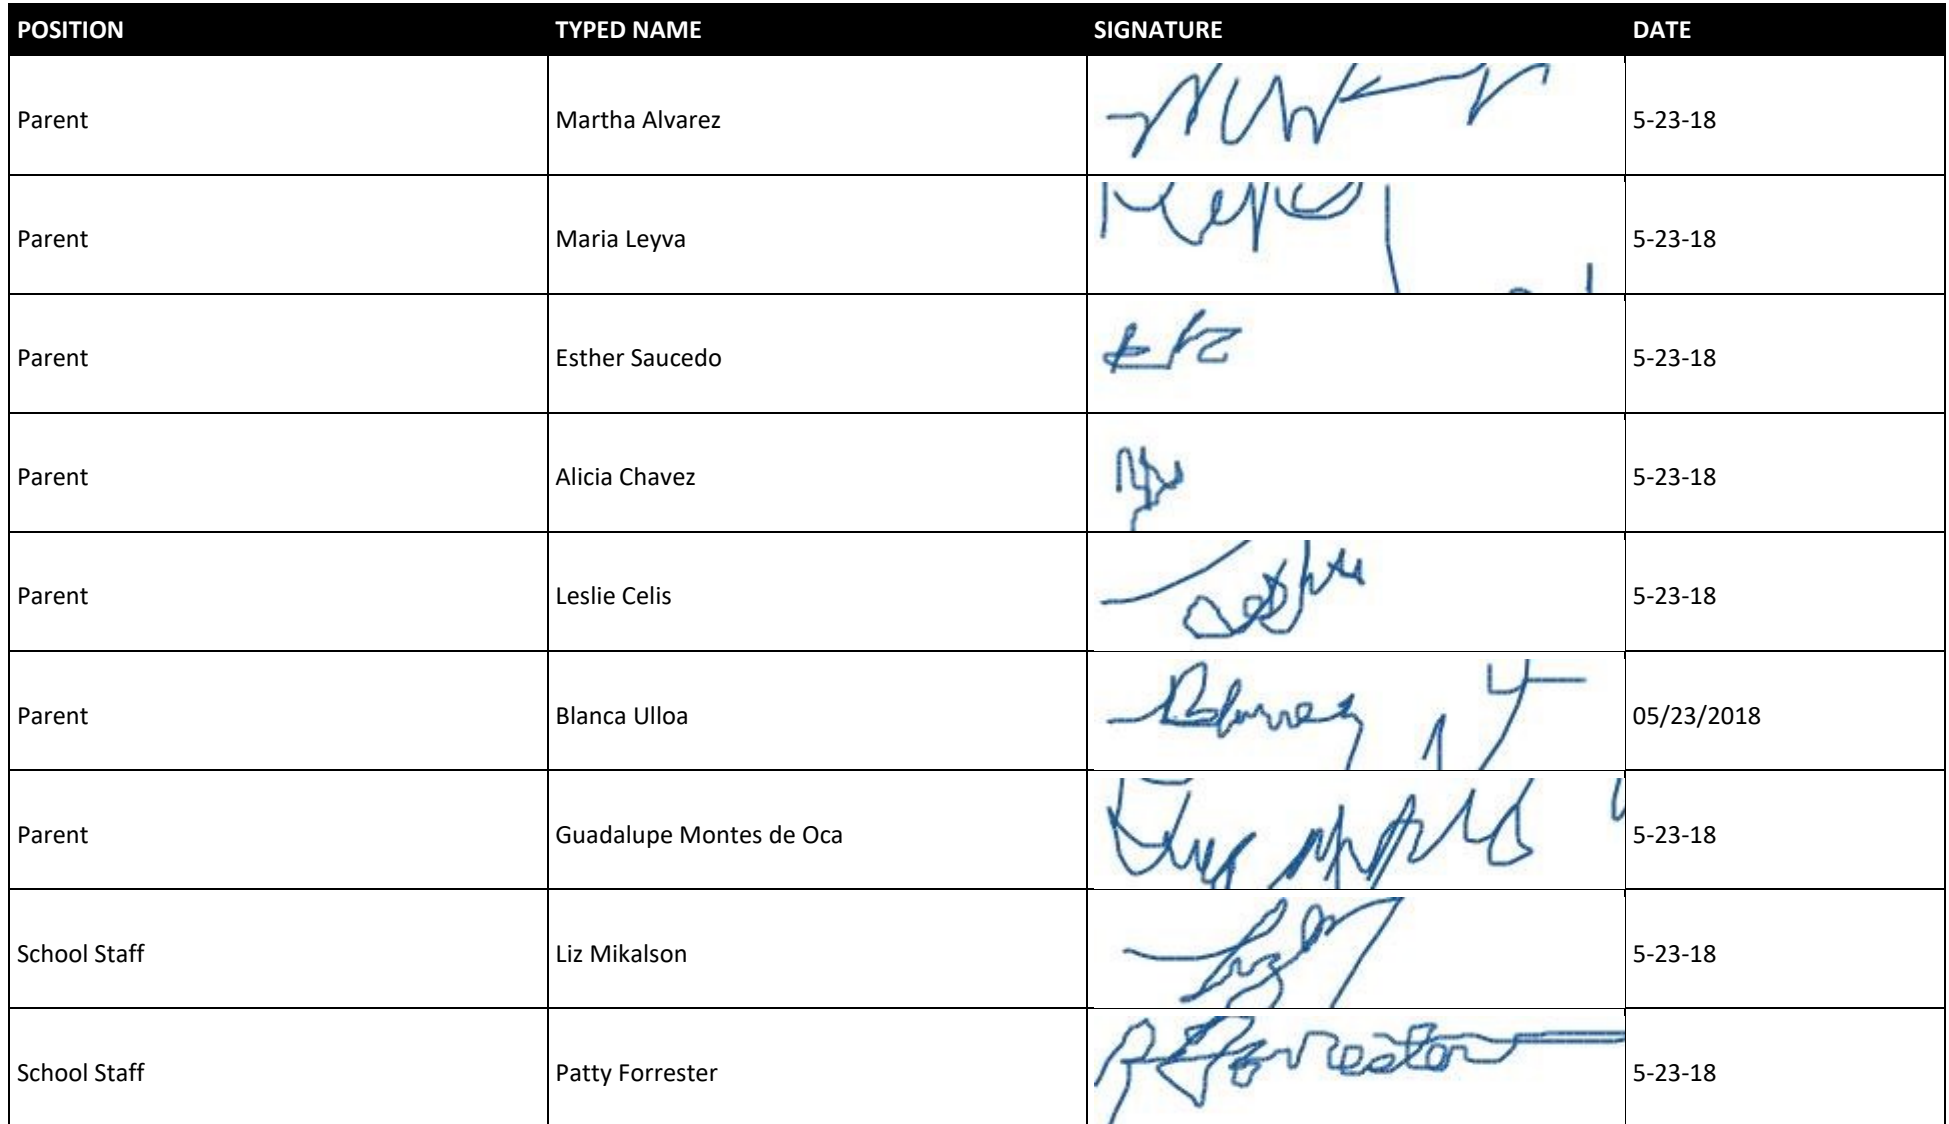 POSITION TYPED NAME SIGNATURE DATE
Parent Martha Alvarez 5-23-18
Parent Maria Leyva 5-23-18
Parent Esther Saucedo 5-23-18
Parent Alicia Chavez 5-23-18
Parent Leslie Celis 5-23-18
Parent Blanca Ulloa 05/23/2018
Parent Guadalupe Montes de Oca 5-23-18
School Staff Liz Mikalson 5-23-18
School Staff Patty Forrester 5-23-18